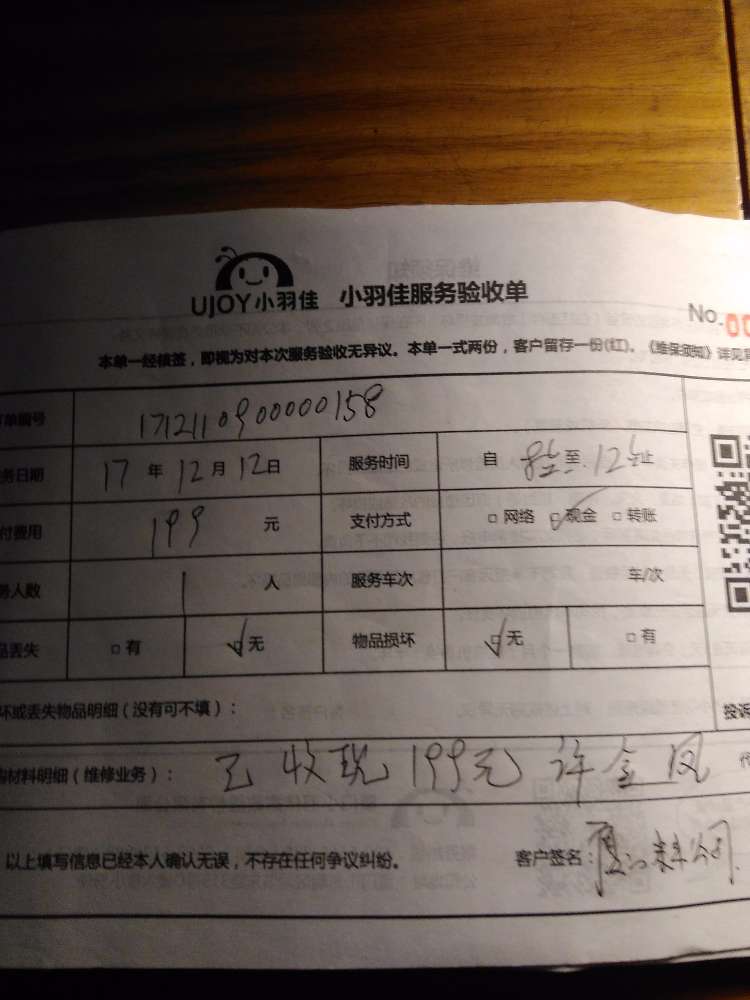 UJOY小羽佳 小羽佳服务验收单
No.00
本单一经核签，即视为对本次服务验收无异议。本单一式两份，客户留存一份(红)。《维保须知》详见背
单编号 1712110900000158
务日期 17 年 12 月 12 日 服务时间 自 8 至 12 止
付费用 199 元 支付方式 □ 网络 □ 现金 □ 转账
务人数 1 人 服务车次 车/次
品丢失 □ 有 □ 无 物品损坏 □ 无 □ 有
坏或丢失物品明细（没有可不填）： 投诉
材料明细（维修业务）： 已收现199元 许金凤 代
以上填写信息已经本人确认无误，不存在任何争议纠纷。 客户签名：